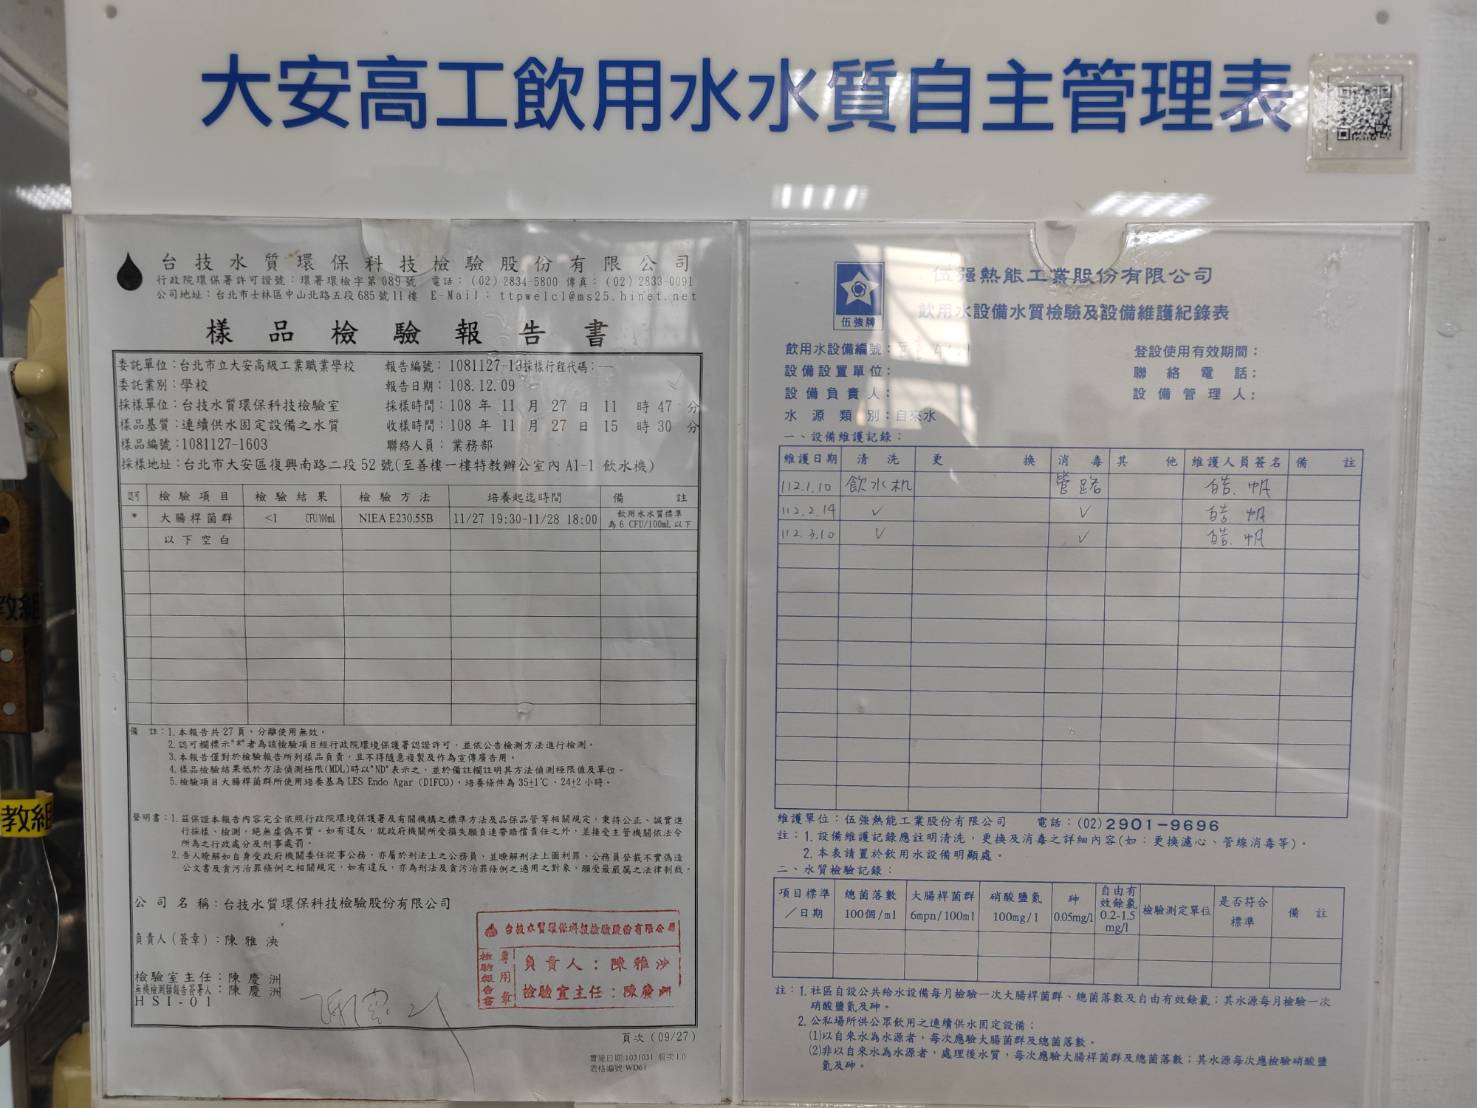 大安高工飲用水水質自主管理表
台技水質環保科技檢驗股份有限公司
行政院環保署許可證號：環署環檢字第089號 電話：(02) 2834-5800 傳真：(02) 2833-0091
公司地址：台北市士林區中山北路五段685號11樓 E-Mail：ttpwelcl@ms25.hinet.net
樣品檢驗報告書
委託單位：台北市立大安高級工業職業學校 報告編號：1081127-13採樣行程代碼：—
委託業別：學校 報告日期：108.12.09
採樣單位：台技水質環保科技檢驗室 採樣時間：108 年 11 月 27 日 11 時 47 分
樣品基質：連續供水固定設備之水質 收樣時間：108 年 11 月 27 日 15 時 30 分
樣品編號：1081127-1603 聯絡人員：業務部
採樣地址：台北市大安區復興南路二段52號(至善樓一樓特教辦公室內 A1-1 飲水機)
認可 檢驗項目 檢驗結果 檢驗方法 培養起迄時間 備註
* 大腸桿菌群 <1 CFU/100mL NIEA E230.55B 11/27 19:30-11/28 18:00 飲用水水質標準為 6 CFU/100mL 以下
以下空白
備註：1.本報告共27頁，分離使用無效。
2.認可欄標示"*"者為該檢驗項目經行政院環境保護署認證許可，並依公告檢測方法進行檢測。
3.本報告僅對於檢驗報告所列樣品負責，且不得隨意複製及作為宣傳廣告用。
4.樣品檢驗結果低於方法偵測極限(MDL)時以"ND"表示之，並於備註欄註明其方法偵測極限值及單位。
5.檢驗項目大腸桿菌群所使用培養基為LES Endo Agar (DIFCO)，培養條件為 35±1℃、24±2 小時。
聲明書：1.茲保證本報告內容完全依照行政院環境保護署及有關機構之標準方法及品保品管等相關規定，秉持公正、誠實進
行採樣、檢測，絕無虛偽不實。如有違反，就政府機關所受損失願負連帶賠償責任之外，並接受主管機關依法令
所為之行政處分及刑事處罰。
2.吾人瞭解如自身受政府機關委任從事公務，亦屬於刑法上之公務員，並瞭解刑法上圖利罪、公務員登載不實偽造
公文書及貪污治罪條例之相關規定，如有違反，亦為刑法及貪污治罪條例之適用之對象，願受最嚴厲之法律制裁。
公司名稱：台技水質環保科技檢驗股份有限公司
負責人(簽章)：陳雅泱
檢驗室主任：陳慶洲
無機檢測類報告簽署人：陳慶洲
HSI-01
台技水質環保科技檢驗股份有限公司
檢驗報告書專用章
負責人：陳雅泱
檢驗室主任：陳慶洲
頁次 (09/27)
實施日期:1031031 版次:1.0
表格編號:WD61
伍強牌
伍强熱能工業股份有限公司
飲用水設備水質檢驗及設備維護紀錄表
飲用水設備編號： 登設使用有效期間：
設備設置單位： 聯絡電話：
設備負責人： 設備管理人：
水源類別：自來水
一、設備維護記錄：
維護日期 清洗 更換 消毒 其他 維護人員簽名 備註
112.1.10 飲水机 管路
112.2.14 ✓ ✓
112.3.10 ✓ ✓
維護單位：伍強熱能工業股份有限公司 電話：(02)2901-9696
註：1.設備維護記錄應註明清洗、更換及消毒之詳細內容(如：更換濾心、管線消毒等)。
2.本表請置於飲用水設備明顯處。
二、水質檢驗記錄：
項目標準／日期 總菌落數100個/ml 大腸桿菌群6mpn/100ml 硝酸鹽氮100mg/1 砷0.05mg/l 自由有效餘氯0.2-1.5mg/l 檢驗測定單位 是否符合標準 備註
註：1.社區自設公共給水設備每月檢驗一次大腸桿菌群、總菌落數及自由有效餘氯；其水源每月檢驗一次
硝酸鹽氮及砷。
2.公私場所供公眾飲用之連續供水固定設備：
(1)以自來水為水源者，每次應驗大腸菌群及總菌落數。
(2)非以自來水為水源者，處理後水質，每次應驗大腸桿菌群及總菌落數；其水源每次應檢驗硝酸鹽
氮及砷。